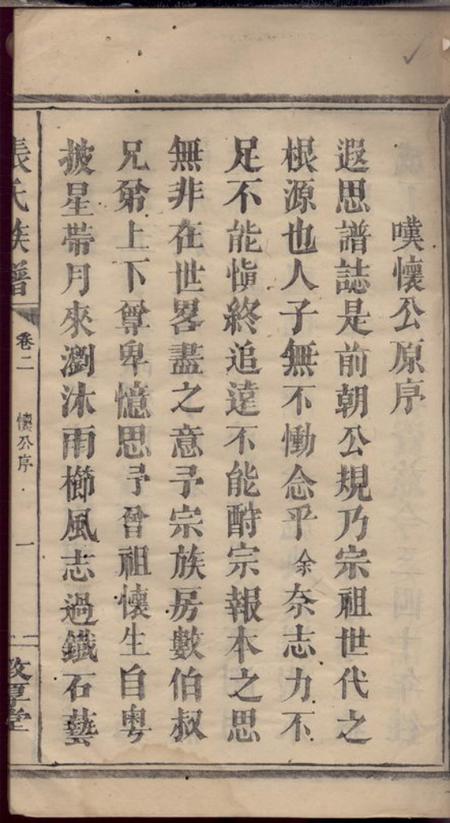 嘆懷公原序
遐思譜誌是前朝公規乃宗祖世代之
根源也人子無不慟念乎余奈志力不
足不能慎終追遠不能酧宗報本之思
無非在世畧盡之意予宗族房數伯叔
兄弟上下尊卑憶思予曾祖懷生自粵
披星帶月來瀏沐雨櫛風志過鐵石藝
張氏族譜 卷二 懷公序 一 敦厚堂